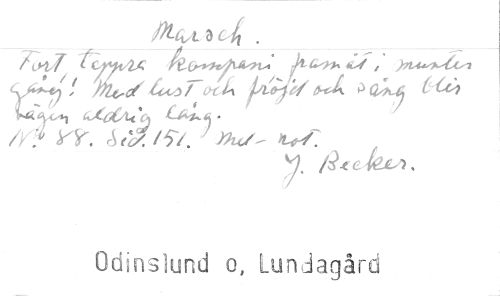 Marsch.
Fort tappra kompani framåt i munter
gång! Med lust och fröjd och sång blir
vägen aldrig lång.
N:o 88. Sid. 151. Mel-not.
J. Becker.
Odinslund o, Lundagård